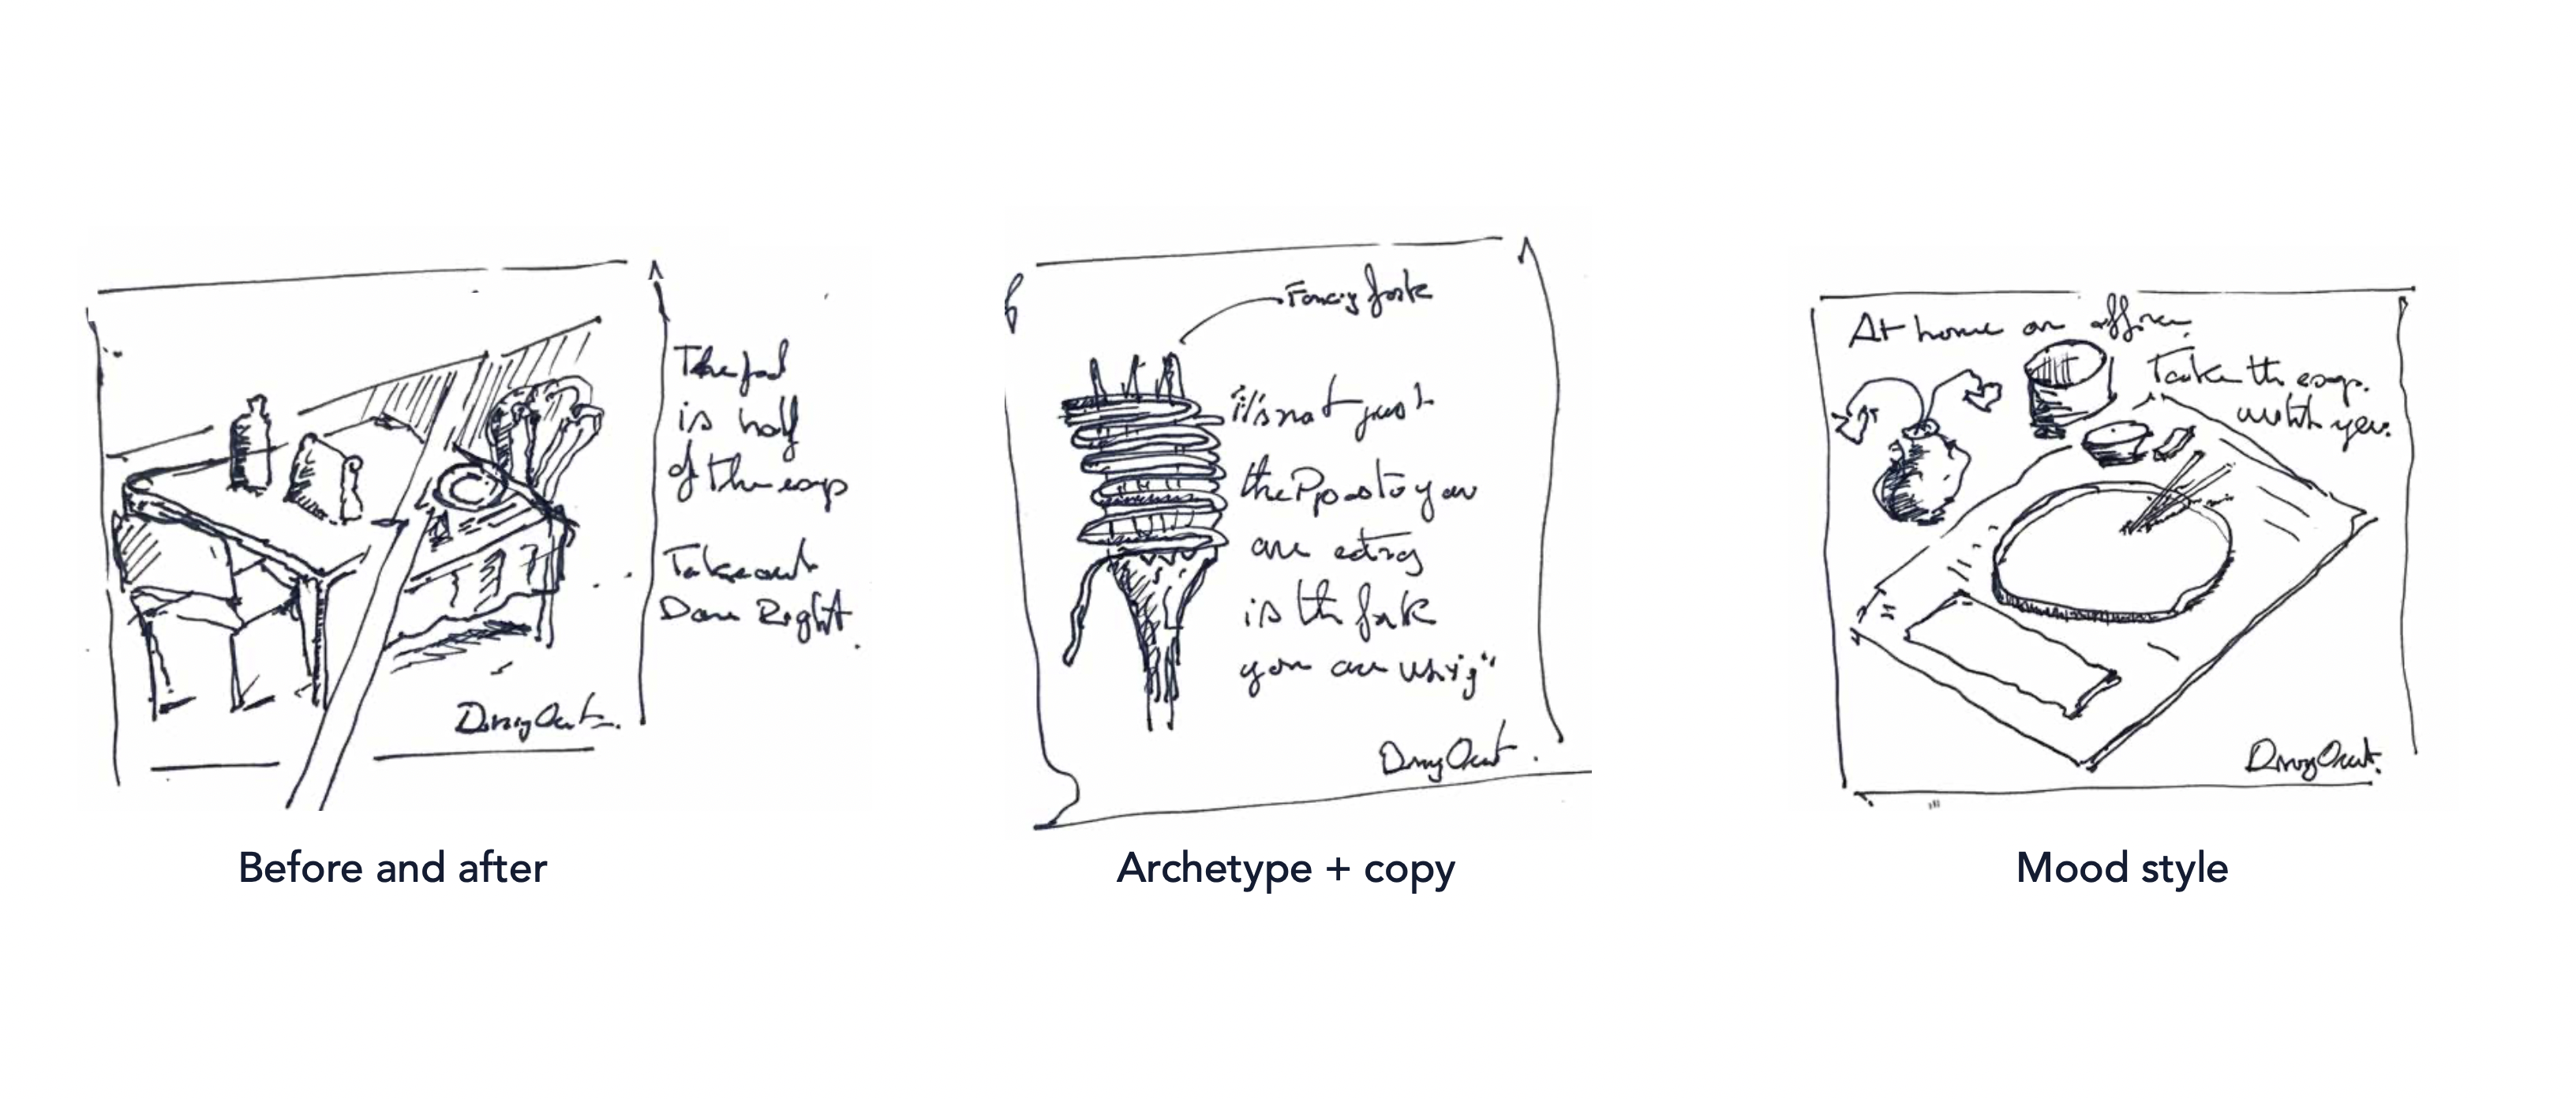 The food
is half
of the exp
Takeout
Done Right.
DiningOut.
Before and after
Fancy fork
it's not just
the Ppasta you
are eating
is the fork
you are using"
DinyOut.
Archetype + copy
At home or office
Take the exp.
with you.
DiningOut.
Mood style